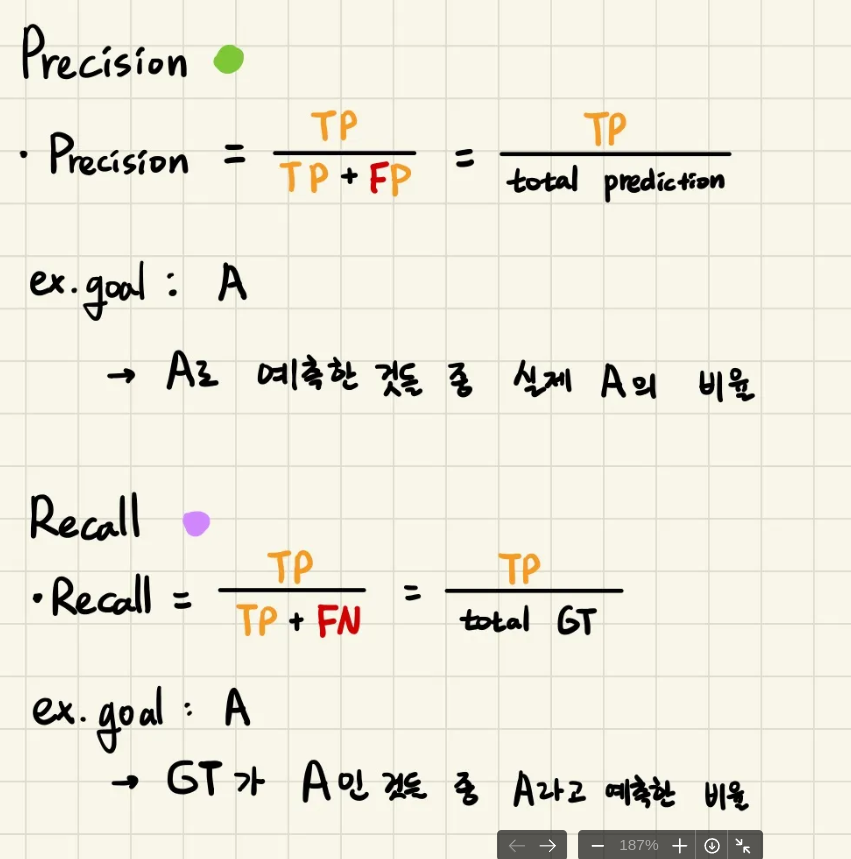 Precision
· Precision = TP / TP + FP = TP / total prediction
ex. goal : A
→ A로 예측한 것들 중 실제 A의 비율
Recall
· Recall = TP / TP + FN = TP / total GT
ex. goal : A
→ GT가 A인 것들 중 A라고 예측한 비율
187%